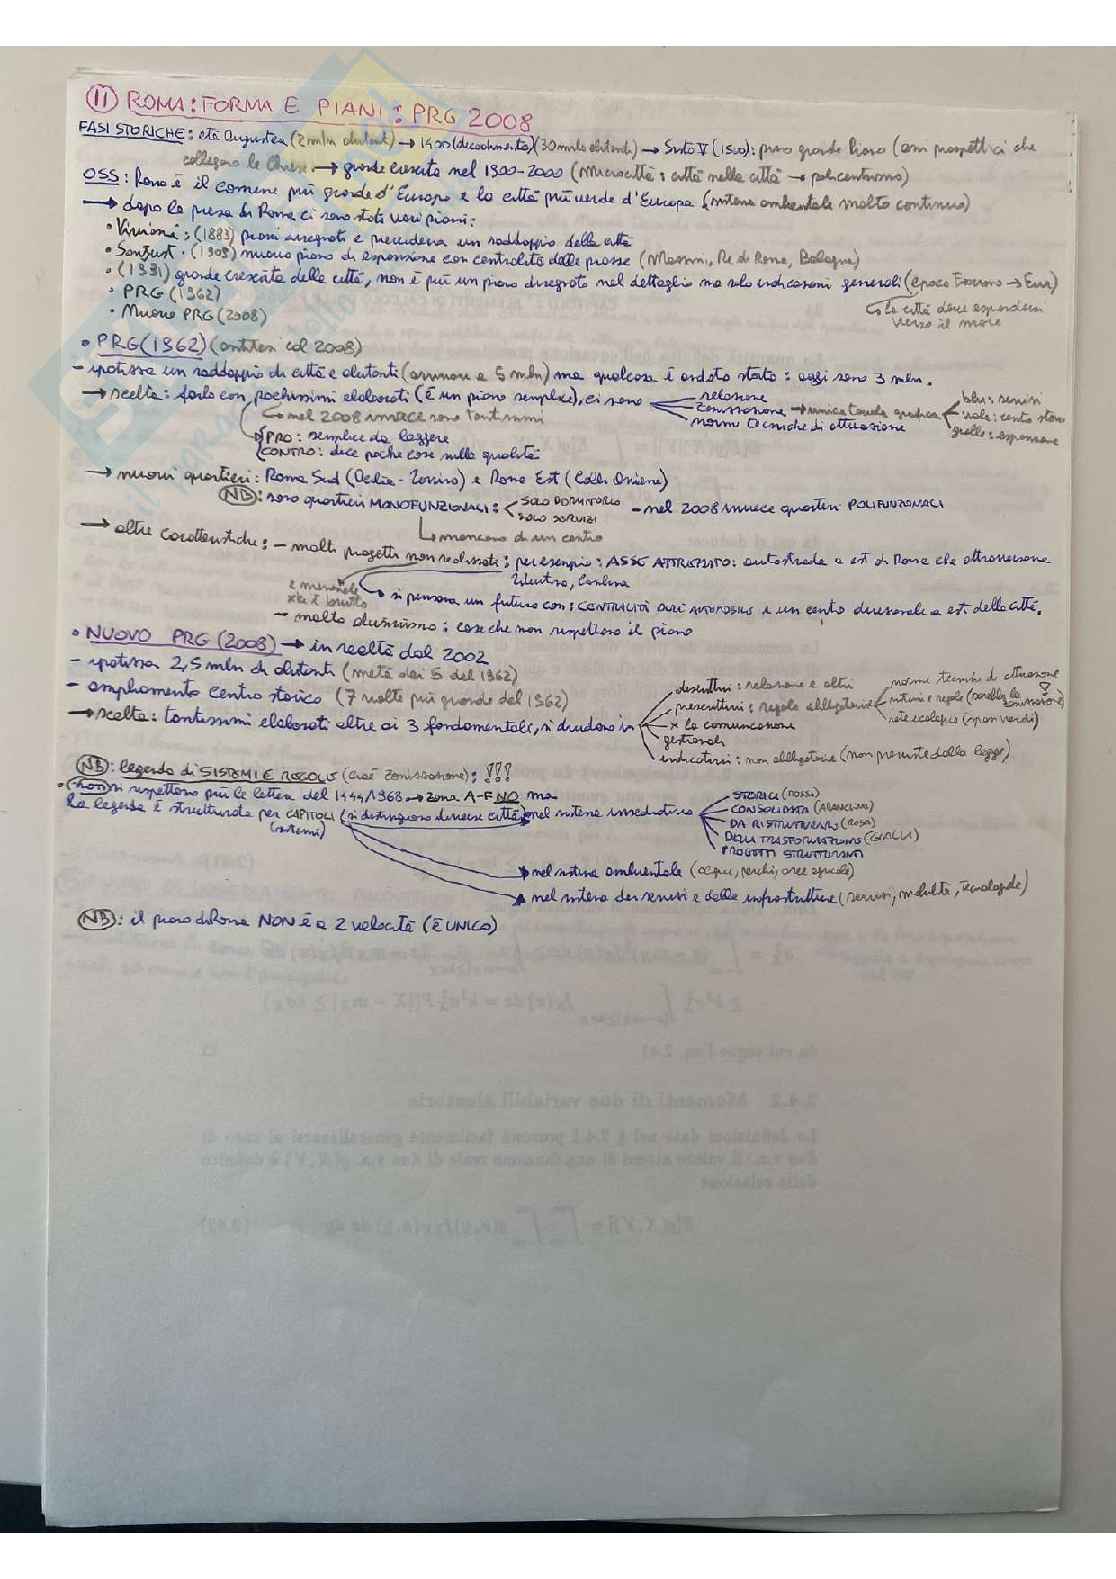 11 ROMA: FORMA E PIANI: PRG 2008
FASI STORICHE: età Augustea (2 mln abitanti) → 1400 (decadimento) (30 mila abitanti) → Sisto V (1500): piano grande (assi prospettici che
collegano le Chiese → grande crescita nel 1900-2000 (Microcittà: città nella città → policentrismo)
OSS: Roma è il comune più grande d'Europa e la città più verde d'Europa (sistema ambientale molto continuo)
→ dopo la presa di Roma ci sono stati vari piani:
• Viviani: (1883) piani disegnati e prevedeva un raddoppio della città
• Sanjust: (1909) nuovo piano di espansione con centralità date piazze (Mazzini, Re di Roma, Bologna)
• (1931) grande crescita della città, non è più un piano disegnato nel dettaglio ma solo indicazioni generali (epoca Fascismo → Eur)
→ la città deve espandersi
verso il mare
• PRG (1962)
• Nuovo PRG (2008)
• PRG (1962) (antitesi col 2008)
- ipotizza un raddoppio di città e abitanti (arrivare a 5 mln) ma qualcosa è andato storto: oggi sono 3 mln.
→ scelta: farlo con pochissimi elaborati (è un piano semplice), ci sono
relazione
zonizzazione → unica tavola grafica
norme tecniche di attuazione
blu: servizi
viola: centro storico
giallo: espansione
→ nel 2008 invece sono tantissimi
PRO: semplice da leggere
CONTRO: dice poche cose sulla qualità
→ nuovi quartieri: Roma Sud (Ostia - ) e Roma Est (Colli Aniene)
NB: sono quartieri MONOFUNZIONALI:
SOLO DORMITORIO
SOLO SERVIZI
- nel 2008 invece quartieri POLIFUNZIONALI
mancano di un centro
→ altre caratteristiche: - molti progetti non realizzati: per esempio: ASSE ATTREZZATO: autostrada a est di Roma che attraversava
Tiburtina, Casilina
è menomale
xké è brutto
si pensava un futuro con: CENTRALITÀ DELL'AUTOMOBILE e un centro direzionale a est della città.
- molto abusivismo: case che non rispettano il piano
• NUOVO PRG (2008) → in realtà dal 2002
- ipotizza 2,5 mln di abitanti (metà dei 5 del 1962)
- ampliamento centro storico (7 volte più grande del 1962)
→ scelta: tantissimi elaborati oltre ai 3 fondamentali, si dividono in
descrittivi: relazione e altri
prescrittivi: regole obbligatorie
x la comunicazione
gestionali
indicativi: non obbligatorie (non previste dalla legge)
norme tecniche di attuazione
sistemi e regole (sarebbe la zonizzazione)
rete ecologica (spazi verdi)
NB: legenda di SISTEMI E REGOLE (cioè zonizzazione): !!!
• non si rispettano più le lettere del 1444/1968 → zona A-F NO ma
La legenda è strutturata per CAPITOLI (si distinguono diverse città) nel sistema insediativo
(sistemi)
STORICA (ROSSA)
CONSOLIDATA (ARANCIONE)
DA RISTRUTTURARE (ROSA)
DELLA TRASFORMAZIONE (GIALLA)
PROGETTI STRUTTURANTI
nel sistema ambientale (acque, parchi, aree agricole)
nel sistema dei servizi e delle infrastrutture (servizi, mobilità, tecnologiche)
NB: il piano di Roma NON è a 2 velocità (È UNICO)
2.4.2 Momenti di due variabili aleatorie